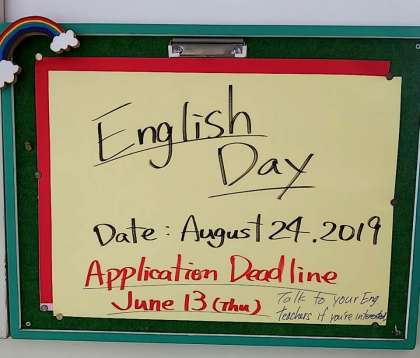 English
Day
Date: August 24. 2019
Application Deadline
June 13 (Thu)
Talk to your Eng
teachers if you're interested